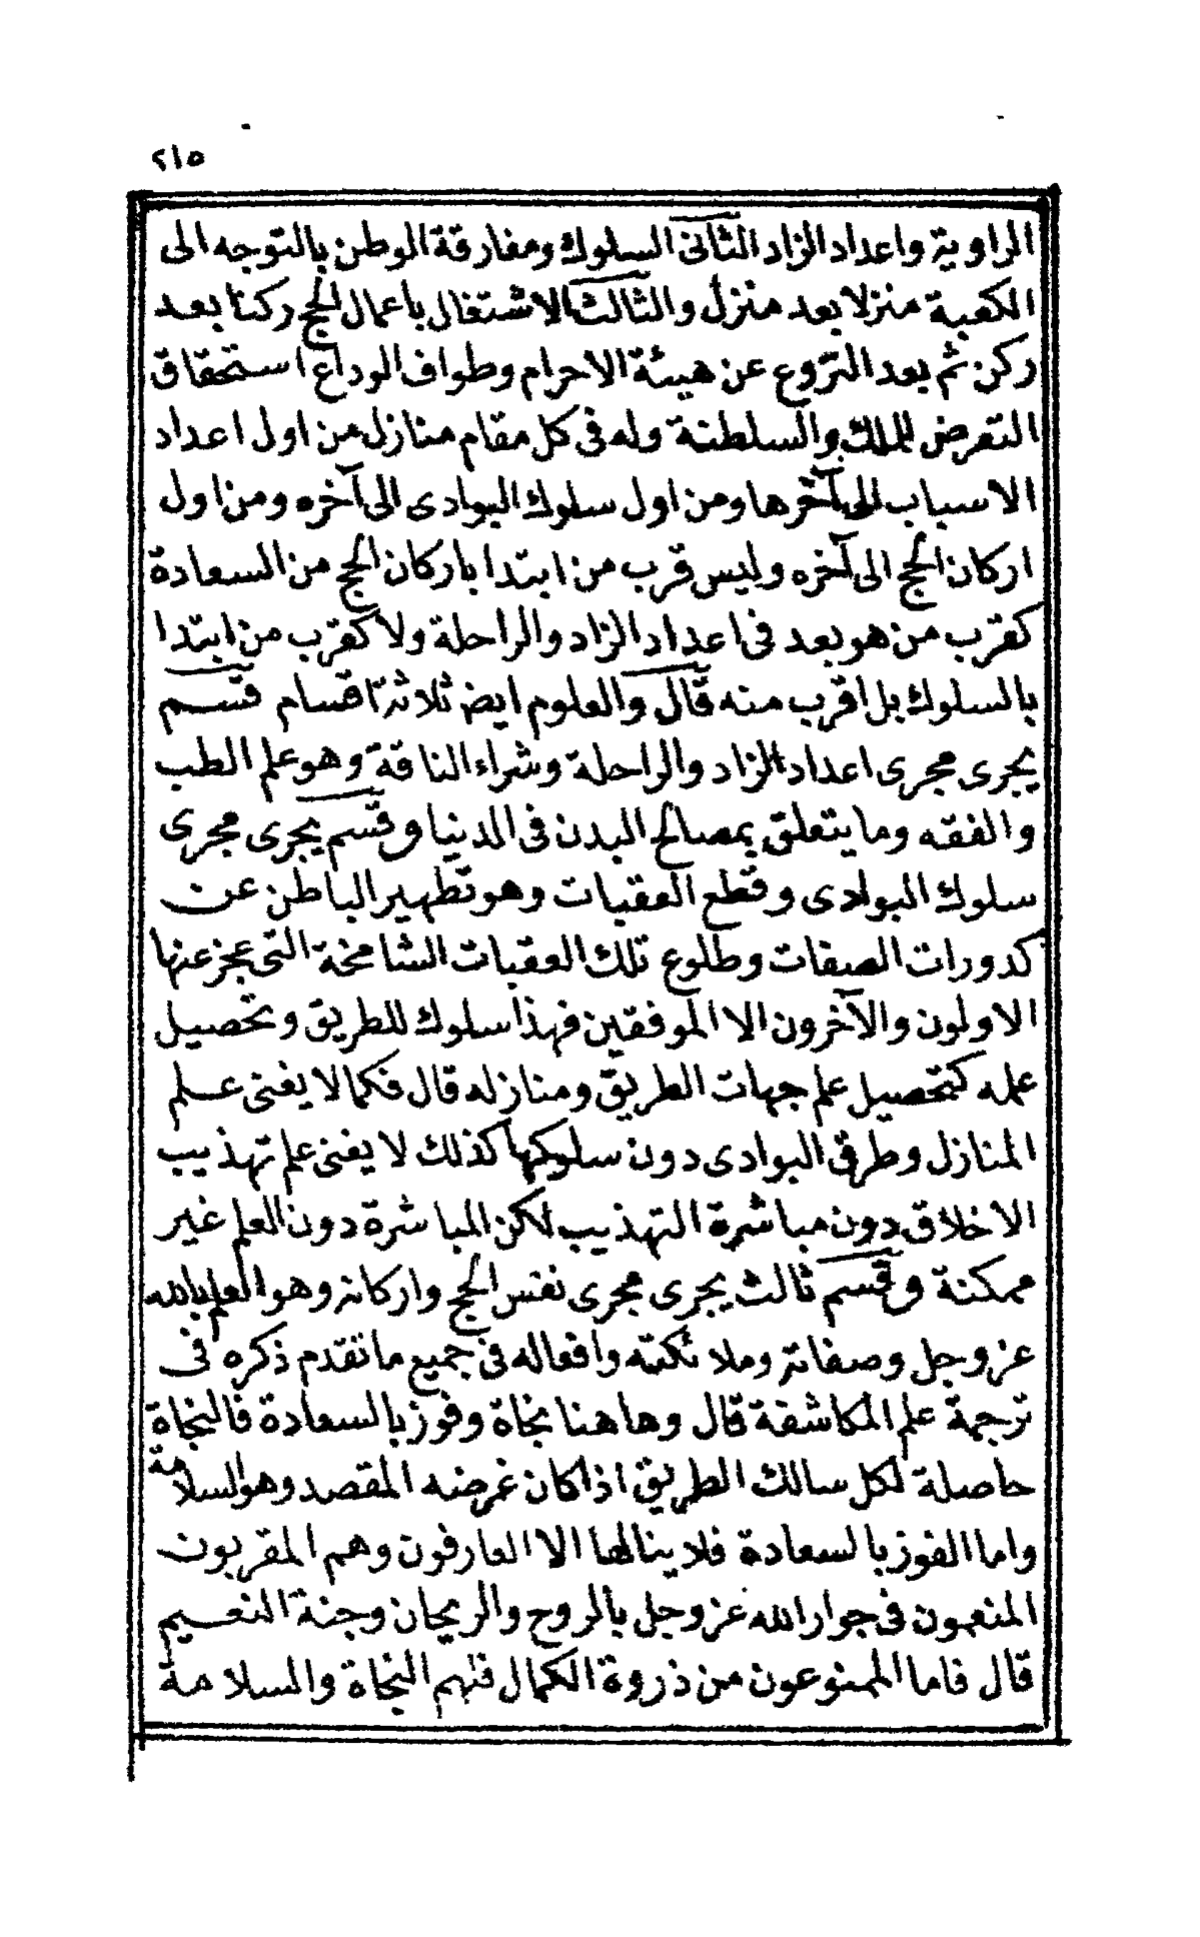 ٢١٥
الراوية واعداد الزاد الثانى السلوك ومفارقة الوطن بالتوجه الى
الكعبة منزلا بعد منزل والثالث الاشتغال باعمال الحج ركنا بعد
ركن ثم بعد النزوع عن هيئة الاحرام وطواف الوداع استحقاق
التعرض للملك والسلطنة وله فى كل مقام منازل من اول اعداد
الاسباب الى آخرها ومن اول سلوك البوادى الى آخره ومن اول
اركان الحج الى آخره وليس قرب من ابتدا باركان الحج من السعادة
كقرب من هو بعد فى اعداد الزاد والراحلة ولا كقرب من ابتدا
بالسلوك بل اقرب منه قال والعلوم ايض ثلاثة اقسام قسم
يجرى مجرى اعداد الزاد والراحلة وشراء الناقة وهو علم الطب
والفقه وما يتعلق بمصالح البدن فى الدنيا وقسم يجرى مجرى
سلوك البوادى وقطع العقبات وهو تطهير الباطن عن
كدورات الصفات وطلوع تلك العقبات الشامخة التى عجز عنها
الاولون والآخرون الا الموفقين فهذا سلوك للطريق وتحصيل
علمه كتحصيل علم جهات الطريق ومنازله قال فكما لا يغنى علم
المنازل وطرق البوادى دون سلوكها كذلك لا يغنى علم تهذيب
الاخلاق دون مباشرة التهذيب لكن المباشرة دون العلم غير
ممكنة وقسم ثالث يجرى مجرى نفس الحج واركانه وهو العلم بالله
عز وجل وصفاته وملائكته وافعاله فى جميع ما تقدم ذكره فى
ترجمة علم المكاشفة قال وهاهنا نجاة وفوز بالسعادة فالنجاة
حاصلة لكل سالك الطريق اذا كان غرضه المقصد وهو السلامة
واما الفوز بالسعادة فلا ينالها الا العارفون وهم المقربون
المنعمون فى جوار الله عز وجل بالروح والريحان وجنة النعيم
قال فاما الممنوعون من ذروة الكمال فلهم النجاة والسلامة